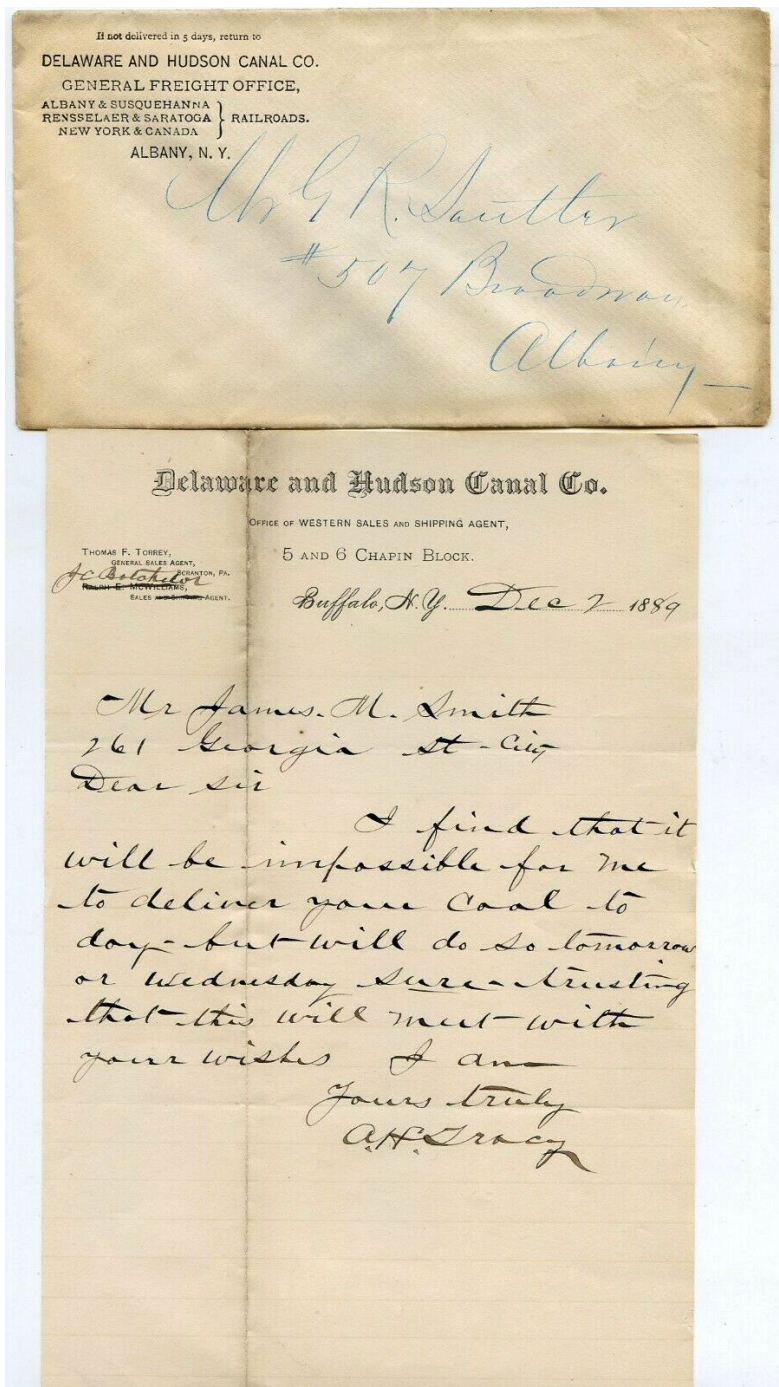 If not delivered in 5 days, return to
DELAWARE AND HUDSON CANAL CO.
GENERAL FREIGHT OFFICE,
ALBANY & SUSQUEHANNA
RENSSELAER & SARATOGA } RAILROADS.
NEW YORK & CANADA
ALBANY, N. Y.
Mr G R. Sautter
#507 Broadway
Albany
Delaware and Hudson Canal Co.
OFFICE OF WESTERN SALES AND SHIPPING AGENT,
5 AND 6 CHAPIN BLOCK.
THOMAS F. TORREY,
GENERAL SALES AGENT,
SCRANTON, PA.
J C Batchelor
RALPH E. MCWILLIAMS,
SALES AND SHIPPING AGENT.
Buffalo, N. Y. Dec 2 1889
Mr James. M. Smith
261 Georgia st - City
Dear sir
I find that it
will be impossible for me
to deliver your coal to
day - but will do so tomorrow
or Wednesday sure - trusting
that this will meet with
your wishes I am
Yours truly
A.H. Tracy